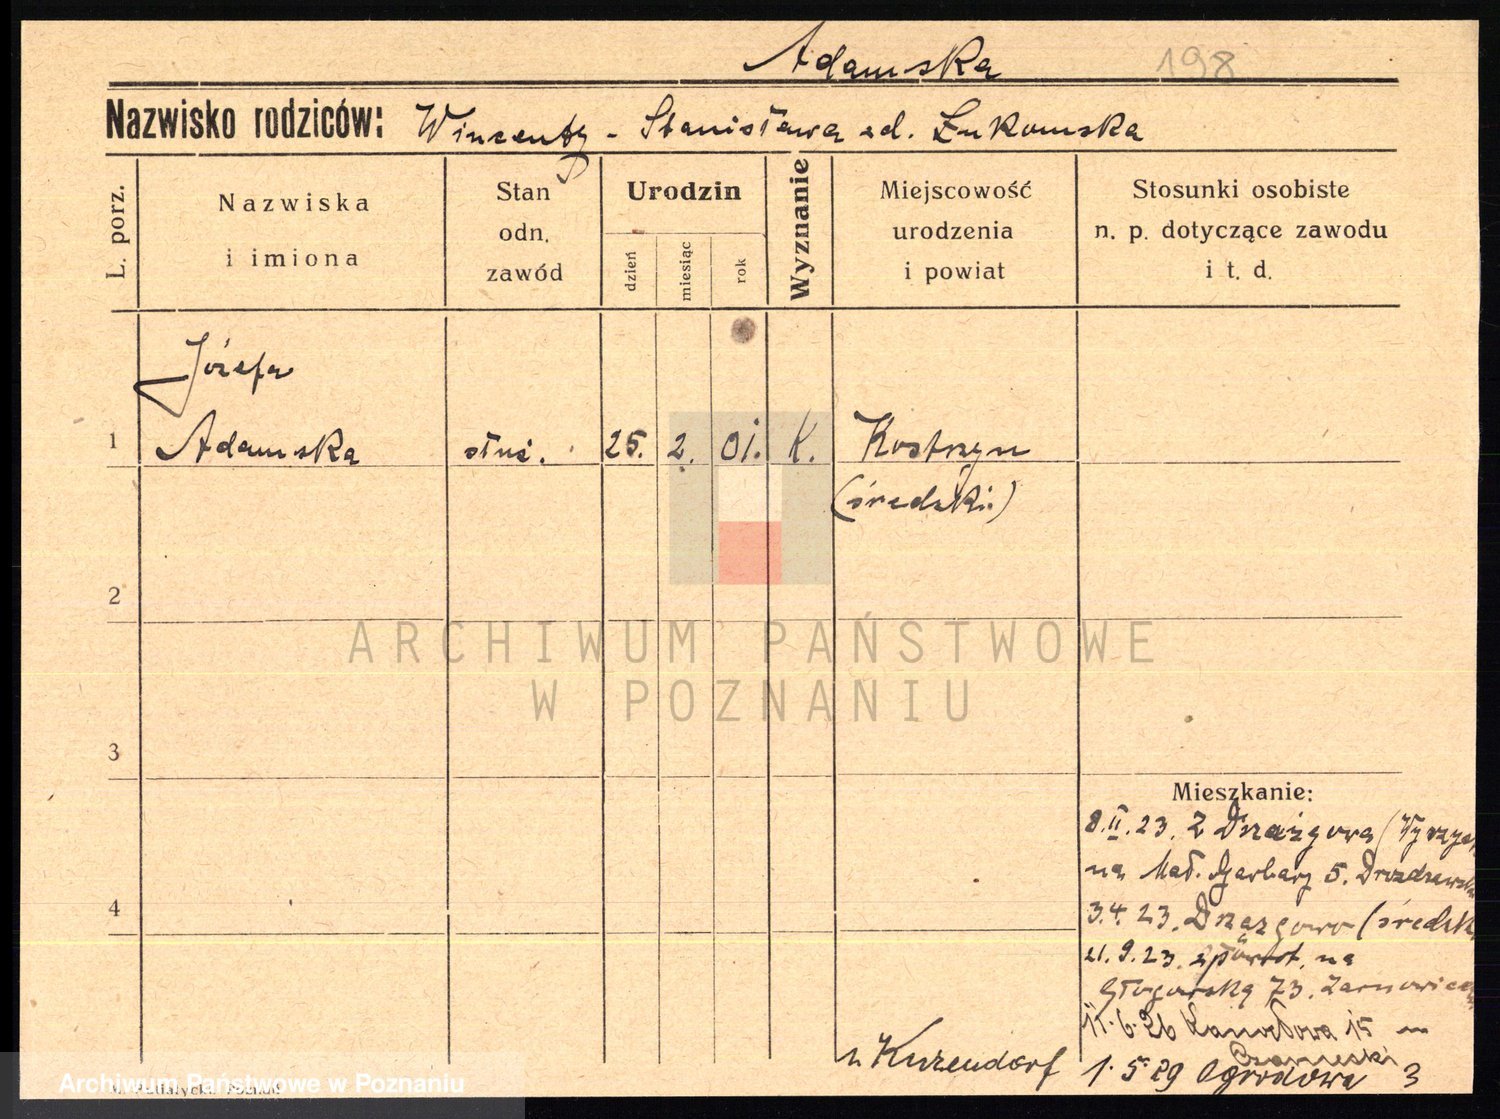 Adamska 198
Nazwisko rodziców: Wincenty - Stanisława zd. Łukomska
L. porz.
Nazwiska
i imiona
Stan
odn.
zawód
Urodzin
dzień
miesiąc
rok
Wyznanie
Miejscowość
urodzenia
i powiat
Stosunki osobiste
n. p. dotyczące zawodu
i t. d.
Józefa
1 Adamska służ. 25. 2. 01. K. Kostrzyn
(średzki)
2
ARCHIWUM PAŃSTWOWE
W POZNANIU
3
Mieszkanie:
8.II.23. Z Drążgowa (Wyrzys
na Mał. Garbary 5. Drozdzewska
4
3.4.23. Drązgowo (średzk
21.9.23. spowrot. na
Głogowską 73. Żarnowiec
11.6.26 15 m
Czarneski
u Kurzendorf
1.5.29 Ogrodowa 3
Archiwum Państwowe w Poznaniu